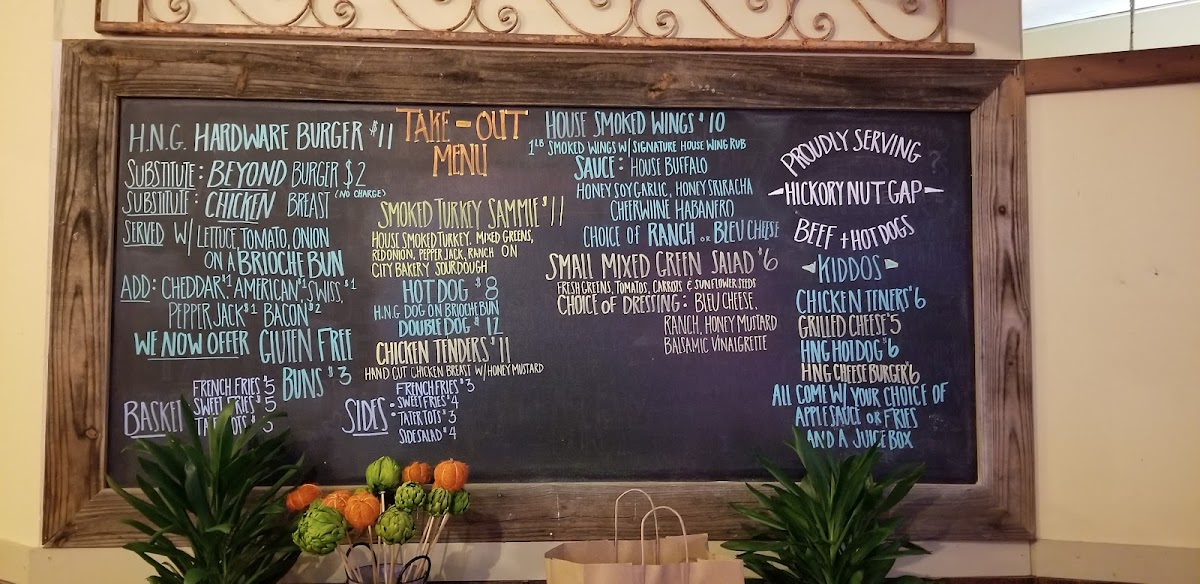 H.N.G. HARDWARE BURGER $11
SUBSTITUTE: BEYOND BURGER $2
(NO CHARGE)
SUBSTITUTE: CHICKEN BREAST
SERVED W/ LETTUCE, TOMATO, ONION
ON A BRIOCHE BUN
ADD: CHEDDAR $1, AMERICAN $1, SWISS, $1
PEPPER JACK $1 BACON $2
WE NOW OFFER GLUTEN FREE
BUNS $3
BASKET
FRENCH FRIES $5
SWEET FRIES $5
TAKE-OUT
MENU
SMOKED TURKEY SAMMIE $11
HOUSE SMOKED TURKEY, MIXED GREENS,
RED ONION, PEPPER JACK, RANCH ON
CITY BAKERY SOURDOUGH
HOT DOG $8
H.N.G DOG ON BRIOCHE BUN
DOUBLE DOG $12
CHICKEN TENDERS $11
HAND CUT CHICKEN BREAST W/ HONEY MUSTARD
SIDES:
FRENCH FRIES $3
SWEET FRIES $4
TATER TOTS $3
SIDE SALAD $4
HOUSE SMOKED WINGS $10
1LB SMOKED WINGS W/ SIGNATURE HOUSE WING RUB
SAUCE: HOUSE BUFFALO
HONEY SOY GARLIC, HONEY SRIRACHA
CHEERWIINE HABANERO
CHOICE OF RANCH OR BLEU CHEESE
SMALL MIXED GREEN SALAD $6
FRESH GREENS, TOMATOS, CARROTS & SUNFLOWER SEEDS
CHOICE OF DRESSING: BLEU CHEESE,
RANCH, HONEY MUSTARD
BALSAMIC VINAIGRETTE
PROUDLY SERVING
HICKORY NUT GAP
BEEF + HOT DOGS
KIDDOS
CHICKEN TENERS $6
GRILLED CHEESE $5
HNG HOT DOG $6
HNG CHEESE BURGER $6
ALL COME W/ YOUR CHOICE OF
APPLE SAUCE OR FRIES
AND A JUICE BOX